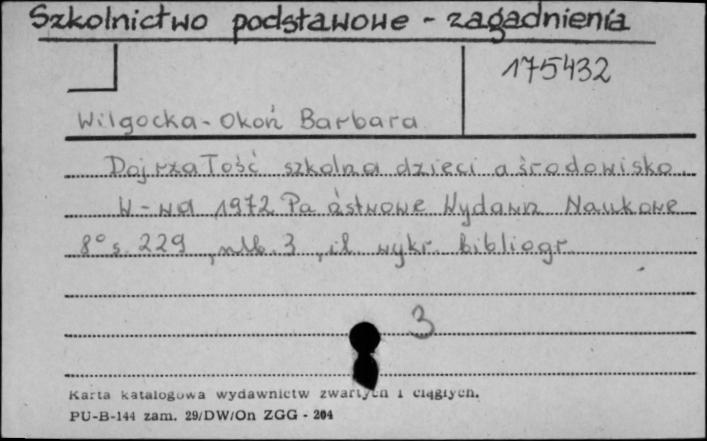 Szkolnictwo podstawowe - zagadnienia
175432
Wilgocka-Okoń Barbara
Dojrzałość szkolna dzieci a środowisko.
W-wa 1972 Pa ństwowe Wydawn Naukowe
8° s. 229, nlb. 3, il. wykr. bibliogr.
3
Karta katalogowa wydawnictw zwartych i ciągłych.
PU-B-144 zam. 29/DW/On ZGG - 204